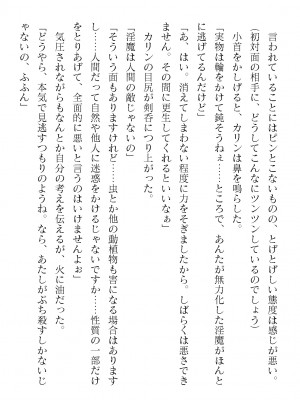 言われていることにはピンとこないものの、とげとげしい態度は感じが悪い。
（初対面の相手に、どうしてこんなにツンツンしているのでしょう）
小首をかしげると、カリンは鼻を鳴らした。
「実物は輪をかけて鈍そうねぇ……ところで、あんたが無力化した淫魔がほんと
に逃げてるんだけど」
「あ、はい。消えてしまわない程度に力をそぎましたから。しばらくは悪さでき
ません。その間に更生してくれるといいなぁ」
カリンの目尻が剣呑につり上がった。
「淫魔は人間の敵じゃないの」
「そういう面もありますけれど……虫とか他の動植物も害になる場合はあります
し……人間だって自然や他人に迷惑をかけるじゃないですか……性質の一部だけ
をとりあげて、全面的に悪いと言うのはいけませんよぉ」
気圧されながらもなんとか自分の考えを伝えるが、火に油だった。
「どうやら、本気で見逃すつもりのようね。なら、あたしがぶち殺すしかないじ
ゃないの、ふふん」